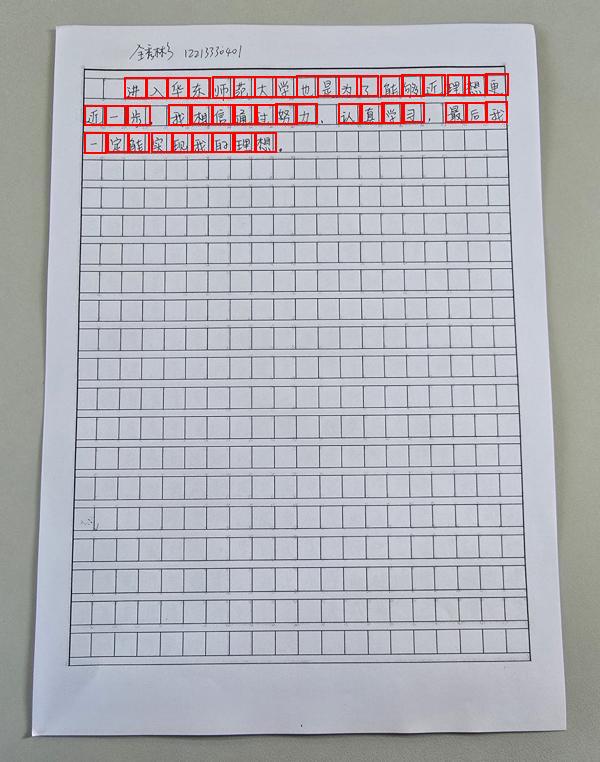 全秀彬 12213330401
进入华东师范大学也是为了能够近理想更
近一步。我相信通过努力、认真学习，最后我
一定能实现我的理想。